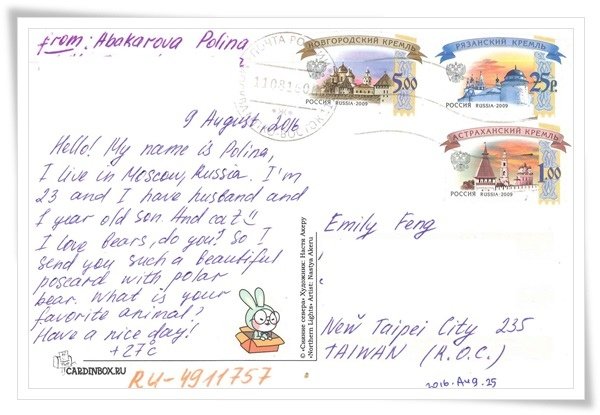 from: Abakarova Polina
9 August, 2016
Hello! My name is Polina,
I live in Moscow, Russia. I'm
23 and I have husband and
1 year old son. And cat!!
I love bears, do you? So I
send you such a beautiful
poscard with polar
bear. What is your
favorite animal?
Have a nice day!
+27°C
CARDINBOX.RU
RU-4911757
ПОЧТА РОССИИ
110816
НОВГОРОДСКИЙ КРЕМЛЬ
5,00
РОССИЯ RUSSIA-2009
РЯЗАНСКИЙ КРЕМЛЬ
25р.
РОССИЯ RUSSIA-2009
АСТРАХАНСКИЙ КРЕМЛЬ
1,00
РОССИЯ RUSSIA-2009
© «Сияние севера» Художник: Настя Акеру
«Northern Lights» Artist: Nastya Akeru
Emily Feng
New Taipei City 235
TAIWAN (R.O.C.)
2016.Aug.25